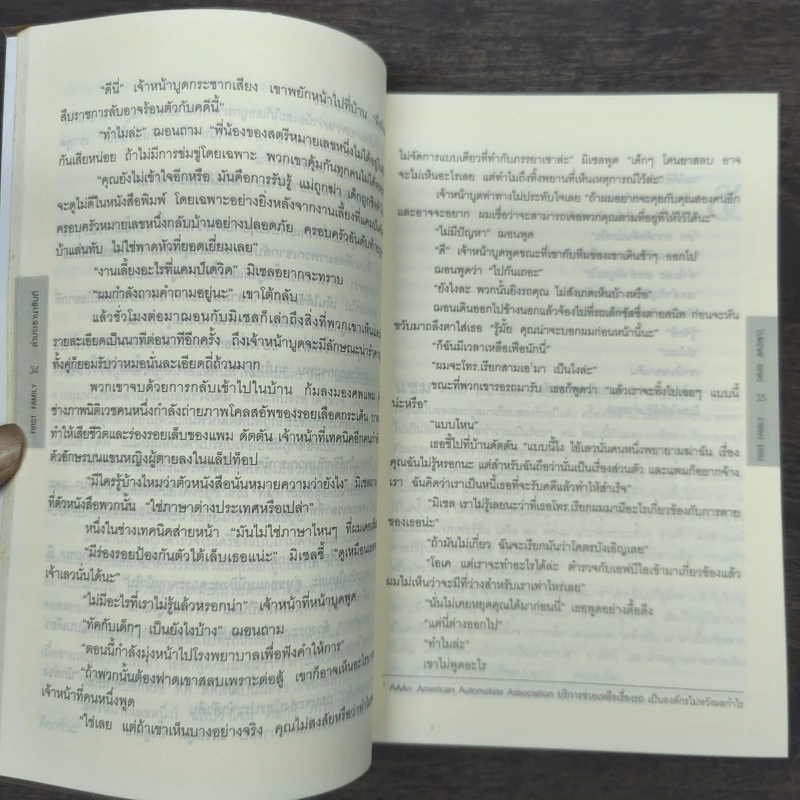 "ดีนี่" เจ้าหน้าบูดกระชากเสียง เขาพยักหน้าไปที่บ้าน
สืบราชการลับอาจร้อนตัวกับคดีนี้"
"ทำไมล่ะ" ฌอนถาม "พี่น้องของสตรีหมายเลขหนึ่งไม่ได้อยู่
กันเสียหน่อย ถ้าไม่มีการข่มขู่โดยเฉพาะ พวกเขาคุ้มกันทุกคนไม่ได้
"คุณยังไม่เข้าใจอีกหรือ มันคือการรับรู้ แม่ถูกฆ่า เด็กถูกชิง
จะดูไม่ดีในหนังสือพิมพ์ โดยเฉพาะอย่างยิ่งหลังจากงานเลี้ยงที่แคมป์เดวิด
ครอบครัวหมายเลขหนึ่งกลับบ้านอย่างปลอดภัย ครอบครัวอันดับท้าย
บ้าแล่นทับ ไม่ใช่พาดหัวที่ยอดเยี่ยมเลย"
"งานเลี้ยงอะไรที่แคมป์เดวิด" มิเชลอยากจะทราบ
"ผมกำลังถามคำถามอยู่นะ" เขาโต้กลับ
แล้วชั่วโมงต่อมาฌอนกับมิเชลก็เล่าถึงสิ่งที่พวกเขาเห็น
รายละเอียดเป็นนาทีต่อนาทีอีกครั้ง ถึงเจ้าหน้าบูดจะมีลักษณะน่ารำคาญ
ทั้งคู่ก็ยอมรับว่าหมอนั่นละเอียดถี่ถ้วนมาก
พวกเขาจบด้วยการกลับเข้าไปในบ้าน ก้มลงมองศพแพม
ช่างภาพนิติเวชคนหนึ่งกำลังถ่ายภาพโคลสอัพของรอยเลือดกระเด็น
ทำให้เสียชีวิตและร่องรอยเล็บของแพม ดัตตัน เจ้าหน้าที่เทคนิคอีกคน
ตัวอักษรบนแขนหญิงผู้ตายลงในแล็ปท็อป
"มีใครรู้บ้างไหมว่าตัวหนังสือนั่นหมายความว่ายังไง" มิเชลถาม
ที่ตัวหนังสือพวกนั้น "ใช่ภาษาต่างประเทศหรือเปล่า"
หนึ่งในช่างเทคนิคส่ายหน้า "มันไม่ใช่ภาษาไหนๆ ที่ผมเคย
"มีร่องรอยป้องกันตัวใต้เล็บเธอแน่ะ" มิเชลชี้ "ดูเหมือนเธอ
เจ้าเลวนั่นได้นะ"
"ไม่มีอะไรที่เราไม่รู้แล้วหรอกน่า" เจ้าหน้าที่หน้าบูดพูด
"ทัคกับเด็กๆ เป็นยังไงบ้าง" ฌอนถาม
"ตอนนี้กำลังมุ่งหน้าไปโรงพยาบาลเพื่อฟังคำให้การ"
"ถ้าพวกนั้นต้องฟาดเขาสลบเพราะต่อสู้ เขาก็อาจเห็นอะไร
เจ้าหน้าที่คนหนึ่งพูด
"ใช่เลย แต่ถ้าเขาเห็นบางอย่างจริง คุณไม่สงสัยหรือว่าทำไม
FIRST FAMILY 34 ล่าประธานาธิบดี
ไม่จัดการแบบเดียวที่ทำกับภรรยาเขาล่ะ" มิเชลพูด "เด็กๆ โดนยาสลบ อาจ
จะไม่เห็นอะไรเลย แต่ทำไมถึงทิ้งพยานที่เห็นเหตุการณ์ไว้ล่ะ"
เจ้าหน้าบูดท่าทางไม่ประทับใจเลย "ถ้าผมอยากจะคุยกับคุณสองคนอีก
และอาจจะอยาก ผมเชื่อว่าจะสามารถเจอพวกคุณตามที่อยู่ที่ให้ไว้ได้นะ"
"ไม่มีปัญหา" ฌอนพูด
"ดี" เจ้าหน้าบูดพูดขณะที่เขากับทีมของเขาเดินช้าๆ ออกไป
ฌอนพูดว่า "ไปกันเถอะ"
"ยังไงละ พวกนั้นยิงรถคุณ ไม่สังเกตเห็นบ้างหรือ"
ฌอนเดินออกไปข้างนอกแล้วจ้องไปที่รถเล็กซัสซึ่งตายสนิท ก่อนจะหัน
ขวับมาถลึงตาใส่เธอ "รู้มั้ย คุณน่าจะบอกผมก่อนหน้านี้นะ"
"ก็ฉันมีเวลาเหลือเฟือนักนี่"
"ผมจะโทร.เรียกสามเอ' มา เป็นไงล่ะ"
ขณะที่พวกเขารอรถมารับ เธอก็พูดว่า "แล้วเราจะทิ้งไปเฉยๆ แบบนี้
น่ะหรือ"
"แบบไหน"
เธอชี้ไปที่บ้านดัตตัน "แบบนี้ไง ไอ้เลวนั่นคนหนึ่งพยายามฆ่าฉัน เรื่อง
คุณฉันไม่รู้หรอกนะ แต่สำหรับฉันถือว่านั่นเป็นเรื่องส่วนตัว และแพมก็อยากจ้าง
เรา ฉันคิดว่าเราเป็นหนี้เธอที่จะรับคดีแล้วทำให้สำเร็จ"
"มิเชล เราไม่รู้เลยนะว่าที่เธอโทร.เรียกผมมามีอะไรเกี่ยวข้องกับการตาย
ของเธอน่ะ"
"ถ้ามันไม่เกี่ยว ฉันจะเรียกมันว่าโคตรบังเอิญเลย"
"โอเค แต่เราจะทำอะไรได้ล่ะ ตำรวจกับเอฟบีไอเข้ามาเกี่ยวข้องแล้ว
ผมไม่เห็นว่าจะมีที่ว่างสำหรับเราเท่าไหร่เลย"
"นั่นไม่เคยหยุดคุณได้มาก่อนนี่" เธอพูดอย่างดื้อดึง
"แต่นี่ต่างออกไป"
"ทำไมล่ะ"
เขาไม่พูดอะไร
' AAA= American Automobile Association บริการช่วยเหลือเรื่องรถ เป็นองค์กรไม่หวังผลกำไร
FIRST FAMILY 35 DAVID BALDACCI